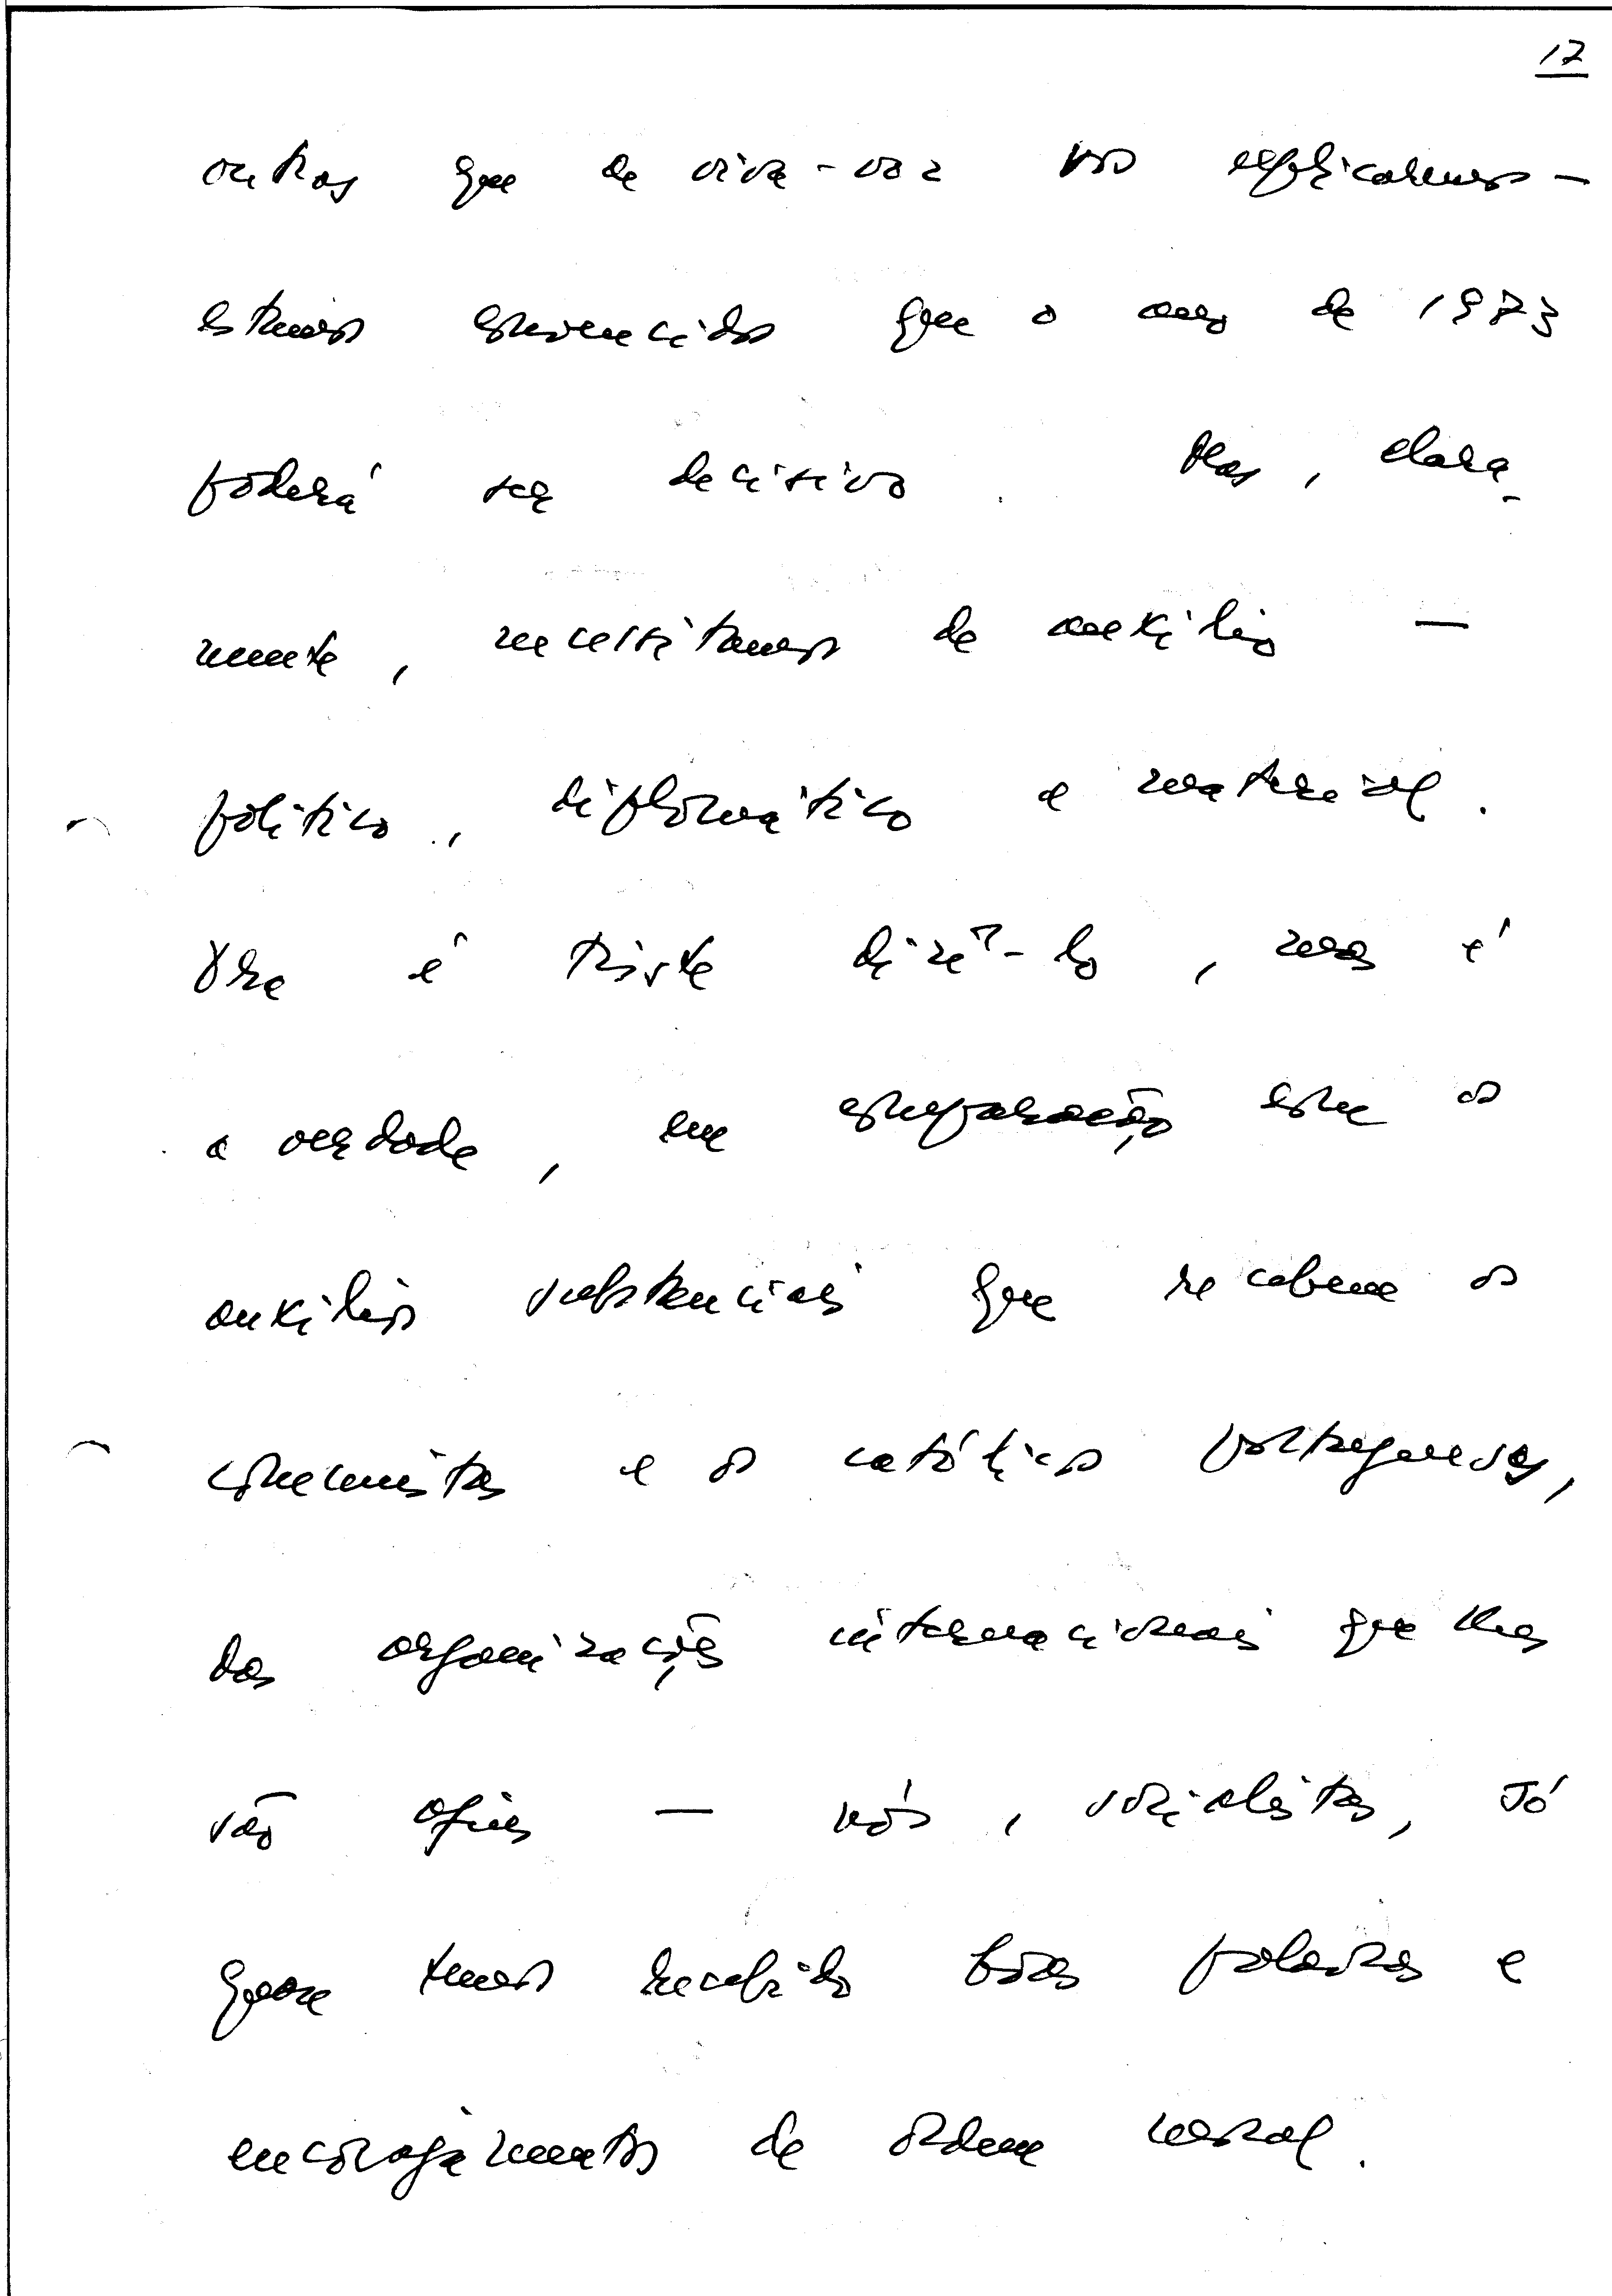 12
outras que de viva-voz vos explicaremos –
estamos convencidos que o ano de 1973
poderá ser decisivo. Mas, clara-
mente, necessitamos de auxílio —
político, diplomático e material.
Ora é triste dizê-lo, mas é
a verdade, em comparação com os
auxílios substanciais que recebem os
comunistas e os católicos portugueses,
das organizações internacionais que lhes
são afins — nós, socialistas, só
quase temos recebido boas palavras e
encorajamentos de ordem moral.